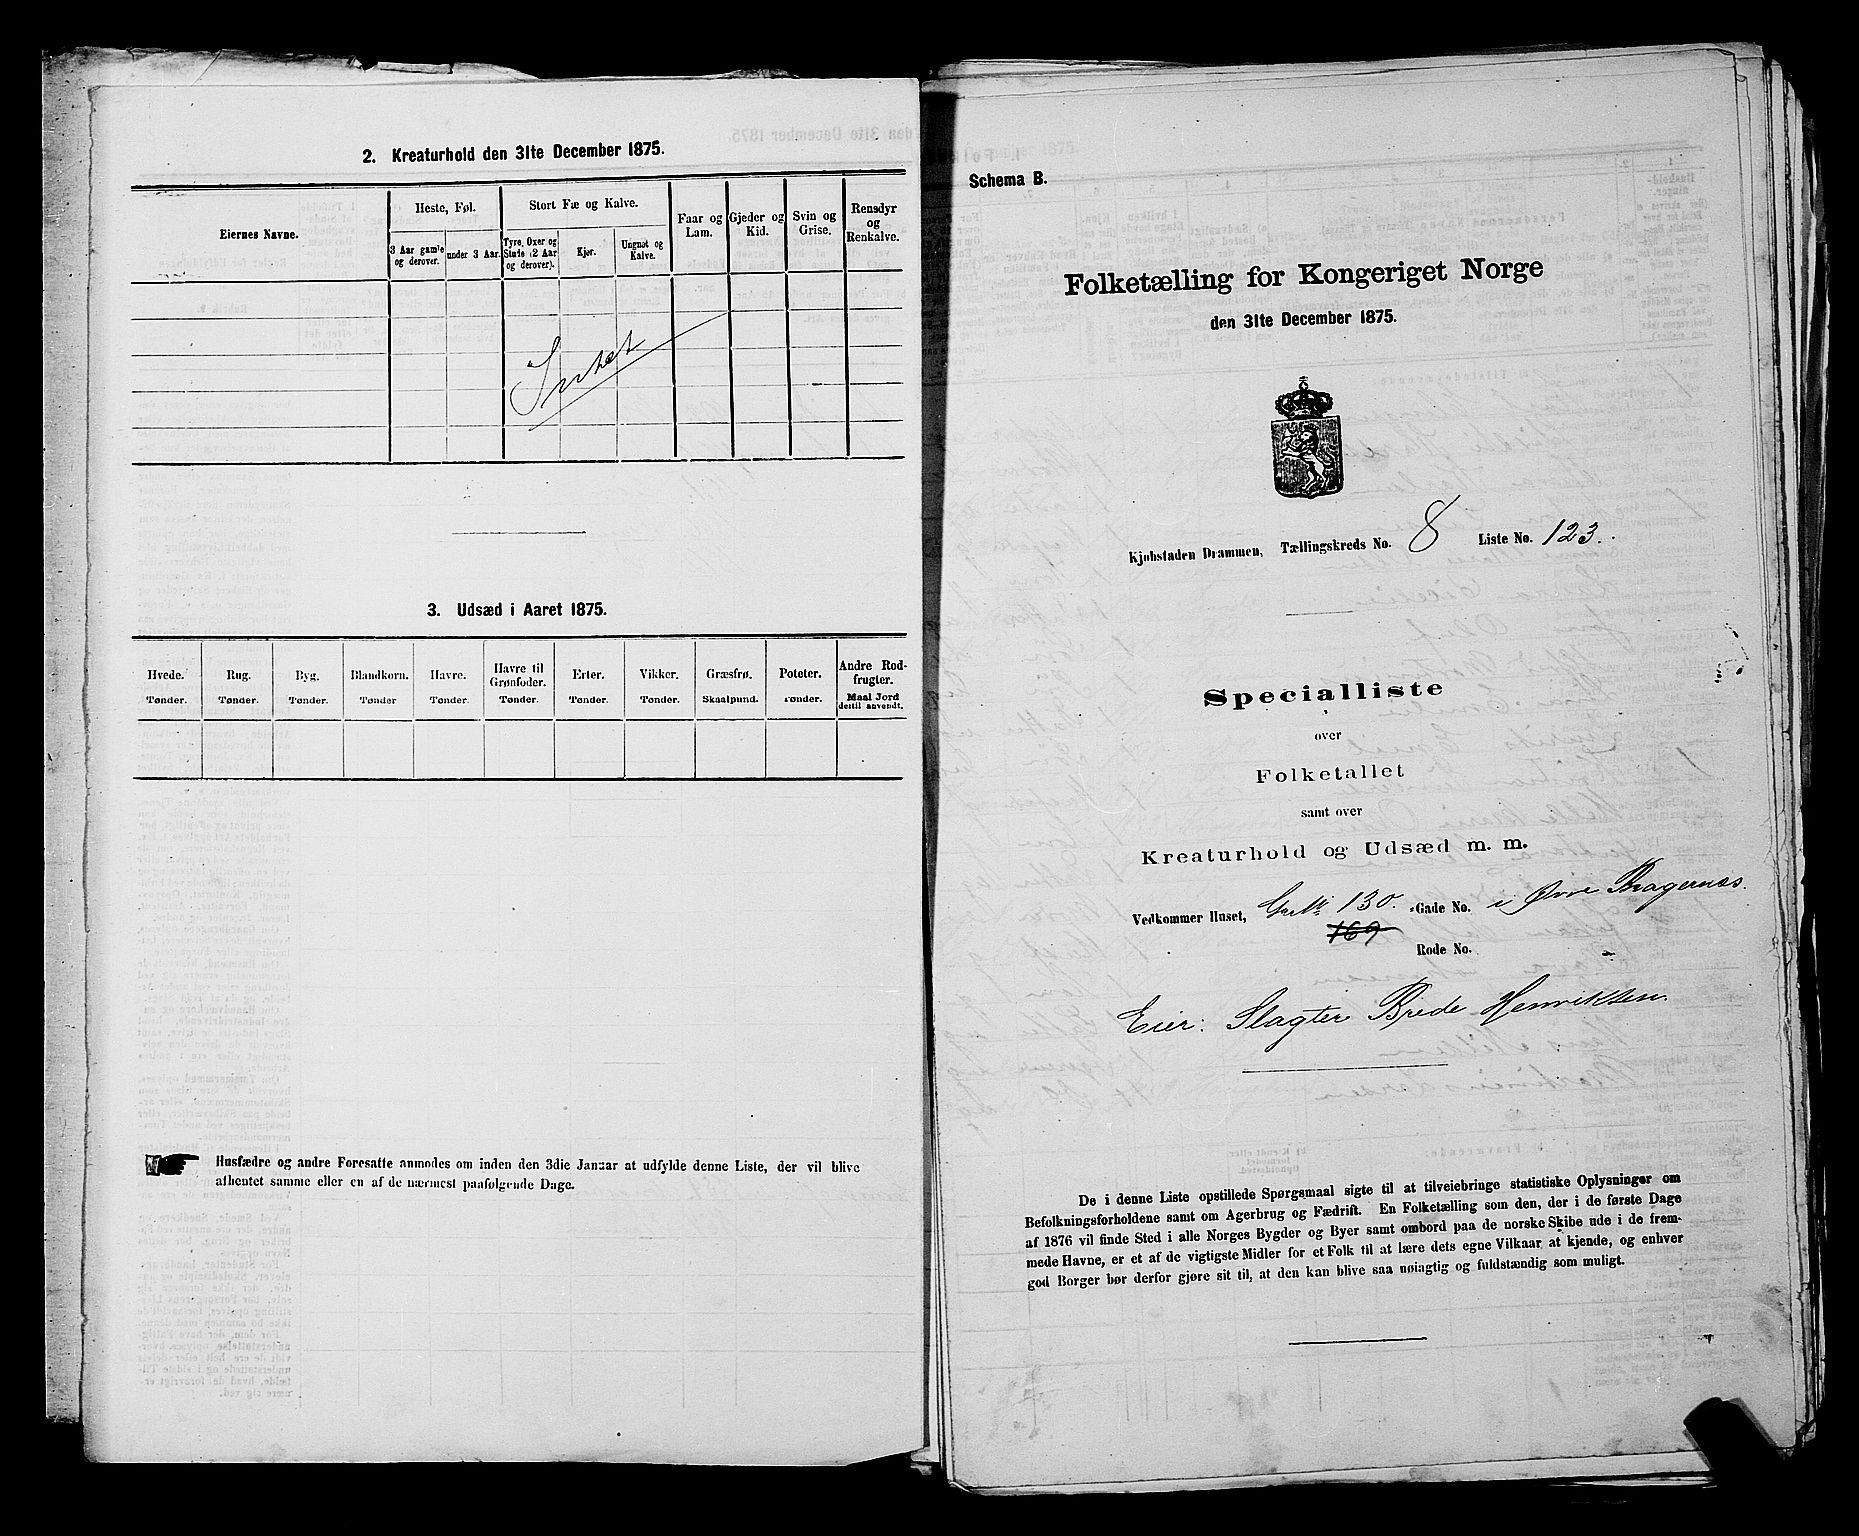 2. Kreaturhold den 31te December 1875.
Eiernes Navne.
Heste, Føl.
3 Aar gamle og derover.
under 3 Aar.
Stort Fæ og Kalve.
Tyre, Oxer og Stude (2 Aar og derover).
Kjør.
Ungnøt og Kalve.
Faar og Lam.
Gjeder og Kid.
Svin og Grise.
Rensdyr og Renkalve.
Intet
3. Udsæd i Aaret 1875.
Hvede. Rug. Byg. Blandkorn. Havre. Havre til Grønfoder. Erter. Vikker. Græsfrø. Poteter. Andre Rodfrugter.
Tønder. Tønder. Tønder. Tønder Tønder. Tønder. Tønder. Tønder. Skaalpund. Tønder. Maal Jord dertil anvendt.
Husfædre og andre Foresatte anmodes om inden den 3die Januar at udfylde denne Liste, der vil blive
afhentet samme eller en af de nærmest paafølgende Dage.
Schema B.
Folketælling for Kongeriget Norge
den 31te December 1875.
Kjøbstaden Drammen, Tællingskreds No. 8 Liste No. 123.
Specialliste
over
Folketallet
samt over
Kreaturhold og Udsæd m. m.
Vedkommer Huset, 130. Gade No. i Øvre Bragernæs.
169
Rode No.
Eier: Slagter Brede Henriksen
De i denne Liste opstillede Spørgsmaal sigte til at tilveiebringe statistiske Oplysninger om
Befolkningsforholdene samt om Agerbrug og Fædrift. En Folketælling som den, der i de første Dage
af 1876 vil finde Sted i alle Norges Bygder og Byer samt ombord paa de norske Skibe ude i de frem-
mede Havne, er et af de vigtigste Midler for et Folk til at lære dets egne Vilkaar at kjende, og enhver
god Borger bør derfor gjøre sit til, at den kan blive saa nøiagtig og fuldstændig som muligt.